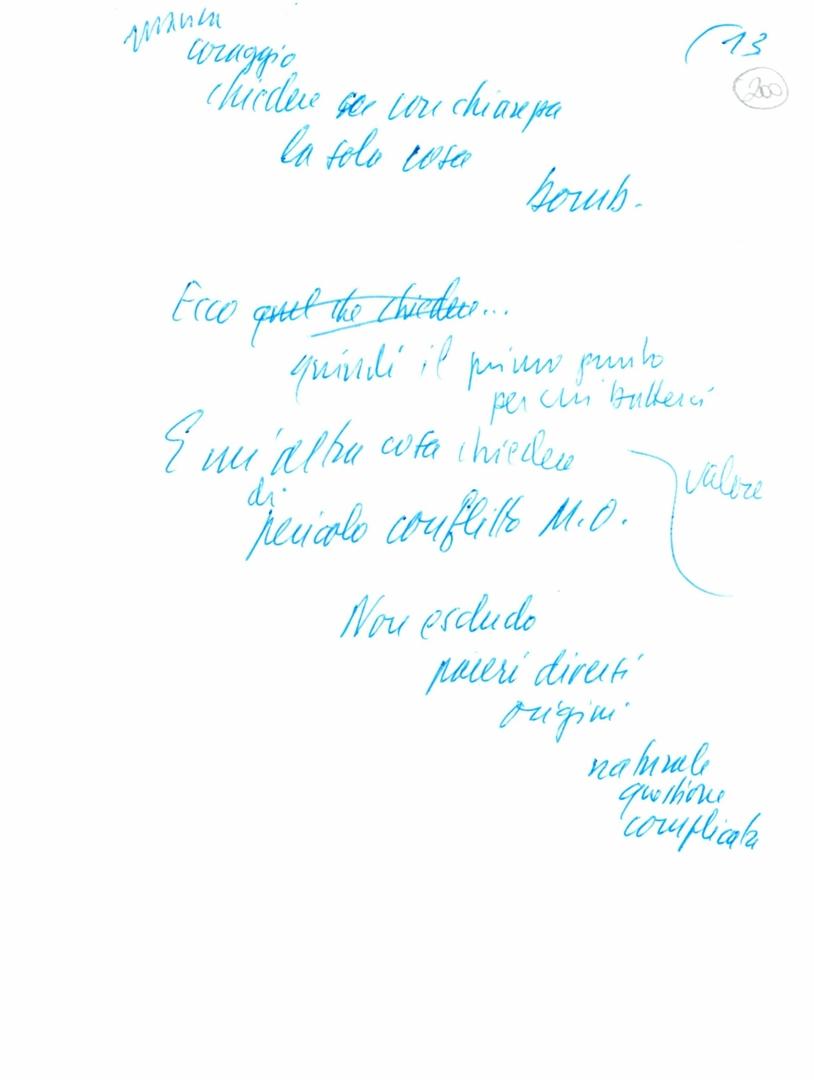 (13
200
manca
coraggio
chiedere con chiarezza
la sola cosa
bomb.
Ecco quel che chiedere...
quindi il primo punto
per cui batterci
E un'altra cosa chiedere
valore
di
pericolo conflitto M.O.
Non escludo
pareri diversi
origini
naturale
questione
complicata